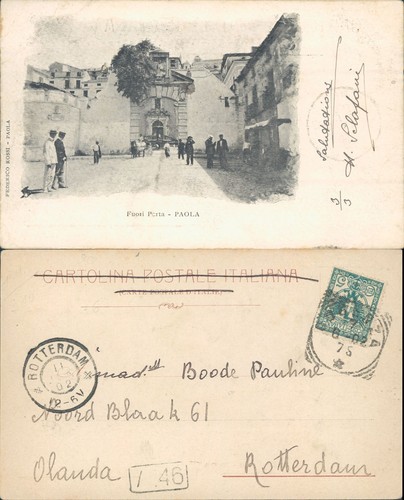 FEDERICO ROSSI - PAOLA
Fuori Porta - PAOLA
Salutazione
H. Sclafani
3/3
CARTOLINA POSTALE ITALIANA
(CARTE POSTALE D'ITALIE)
ROTTERDAM
11
02
12-6V
Boode Pauline
Noord Blaak 61
Olanda
146
Rotterdam